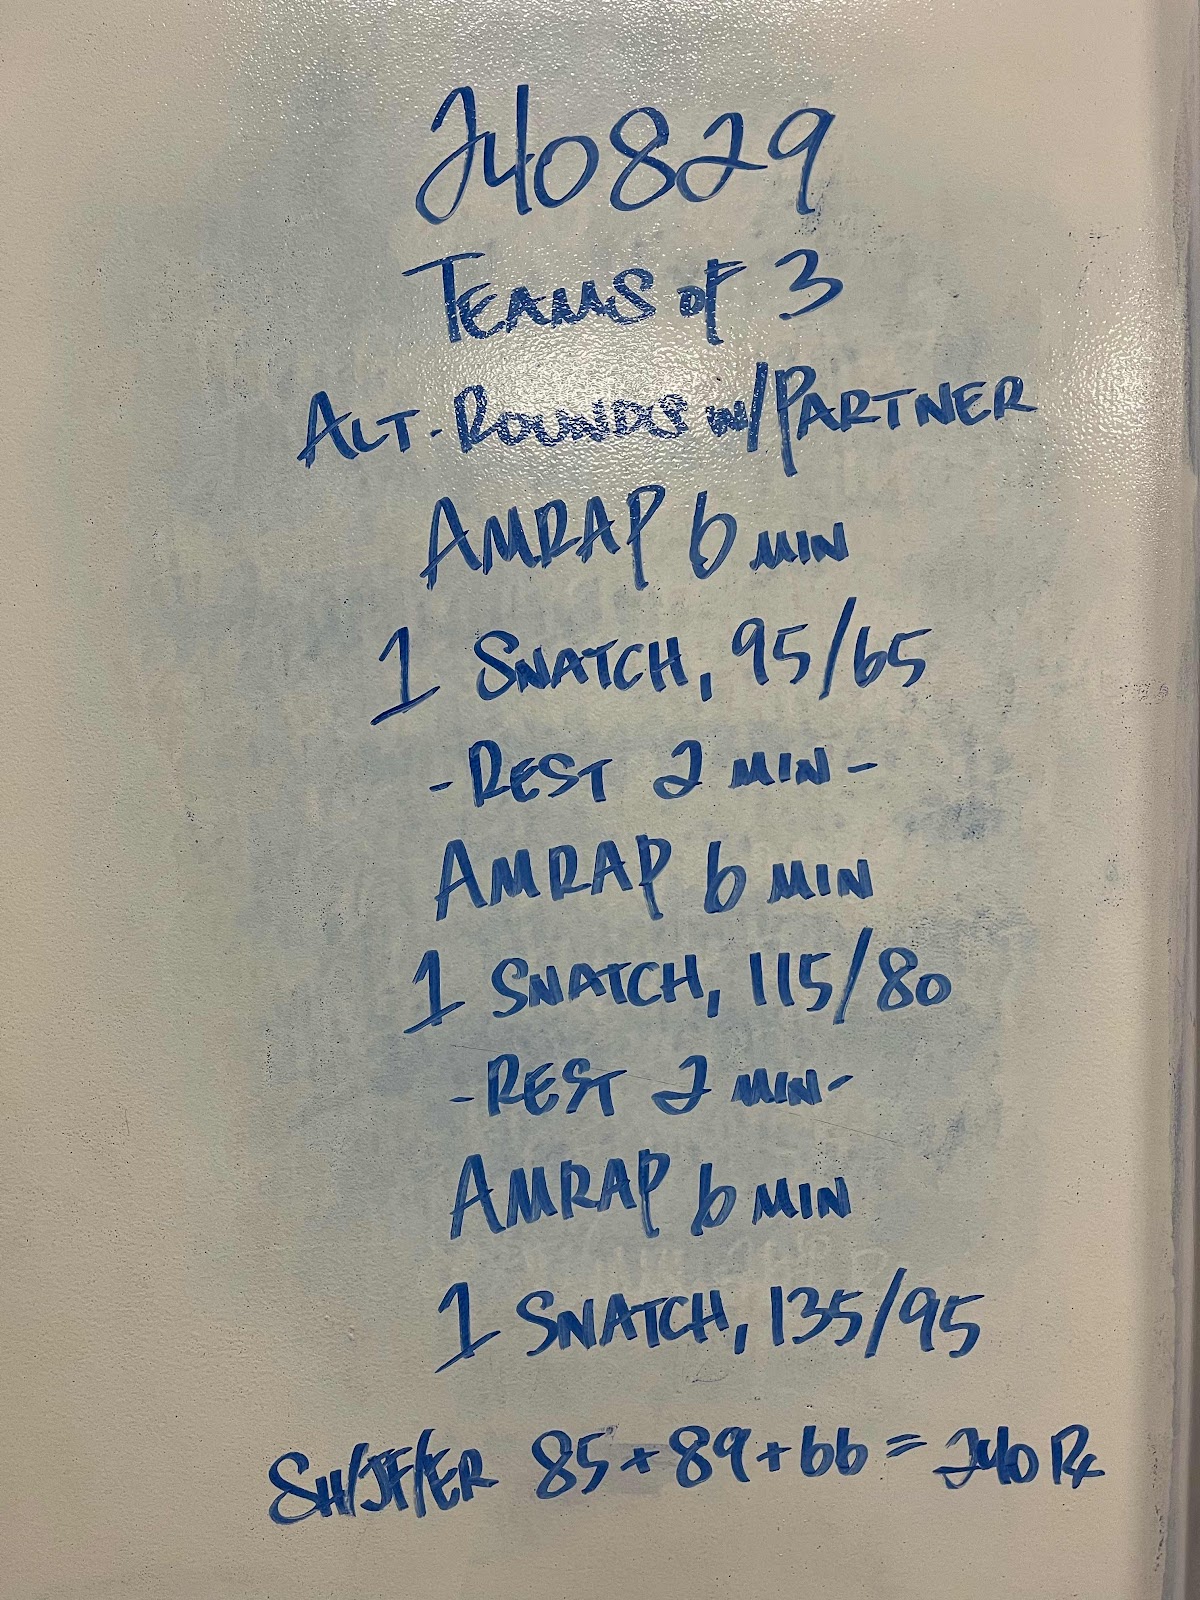 240829
TEAMS OF 3
ALT. ROUNDS W/PARTNER
AMRAP 6 MIN
1 SNATCH, 95/65
-REST 2 MIN-
AMRAP 6 MIN
1 SNATCH, 115/80
-REST 2 MIN-
AMRAP 6 MIN
1 SNATCH, 135/95
SH/JF/ER 85+89+66=240 Rx